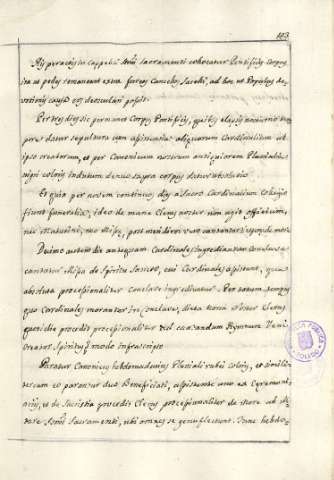 His peractis in Cappella SSmi Sacramenti collocatur Pontificis Corpus
ita ut pedes remaneant extra ferreos Cancellos Sacelli, ad hoc ut Populus de-
votionis causa eos deosculari possit.
Per tres dies sic permanet Corpus Pontificis, quibus elapsis nocturno tem-
pore datur sepulturæ cum assistentia aliquorum Cardinalium ab
ipso creatorum, et per Canonicum nostrum antiquiorem Pluviali
nigri coloris indutum denuo supra corpus datur absolutio.
Et quia per novem continuos dies a Sacro Cardinalium Collegio
fiunt funeralia, ideo de mane Clerus noster non agit officium,
nec Matutini, nec Missæ, post meridiem vero cantantur Vesperæ more
Decimo autem die antequam Cardinales ingrediantur Conclave
cantatur Missa de Spiritu Sancto, cui Cardinales assistunt, qua
absoluta processionaliter Conclave ingrediuntur. Per totum tempus
quo Cardinales morantur in Conclavi, dicta hora Noster Clerus
quotidie procedit processionaliter ad cantandum Hymnum Veni
Creator Spiritus modo infrascripto
Paratur Canonicus hebdomadarius Pluviali rubei coloris, et simili-
ter cum eo parantur duo Beneficiati, assistente uno ex Ceremoni-
ariis, et de Sacristia procedit Clerus processionaliter de more ad Al-
tare SSmi Sacramenti, ubi omnes se genuflectunt. Tunc hebdo-